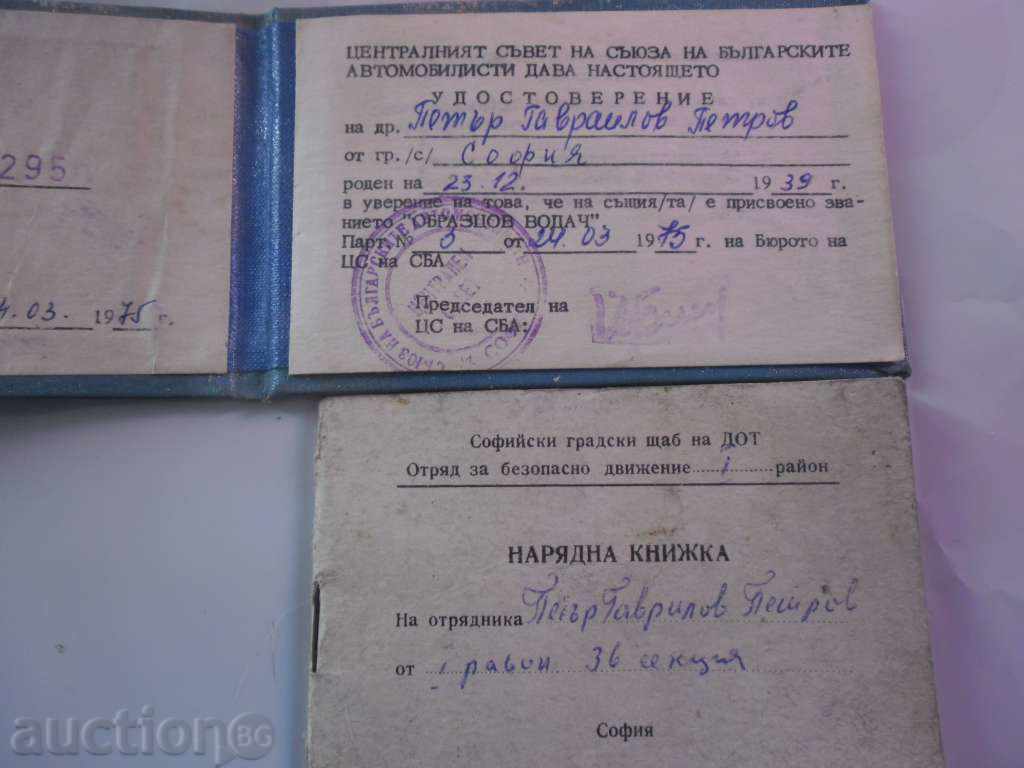 295
4.03. 1975 г.
ЦЕНТРАЛНИЯТ СЪВЕТ НА СЪЮЗА НА БЪЛГАРСКИТЕ
АВТОМОБИЛИСТИ ДАВА НАСТОЯЩЕТО
УДОСТОВЕРЕНИЕ
на др. Петър Гавраилов Петров
от гр. /с/ София
роден на 23.12. 1939 г.
в уверение на това, че на същия/та/ е присвоено зва-
нието "ОБРАЗЦОВ ВОДАЧ"
Парт. № 3 от 24.03 1975 г. на Бюрото на
ЦС на СБА
Председател на
ЦС на СБА:
СЪЮЗ НА БЪЛГАРСКИТЕ
Софийски градски щаб на ДОТ
Отряд за безопасно движение I район
НАРЯДНА КНИЖКА
На отрядника Петър Гаврилов Петров
от I район 36 секция
София
auction BG